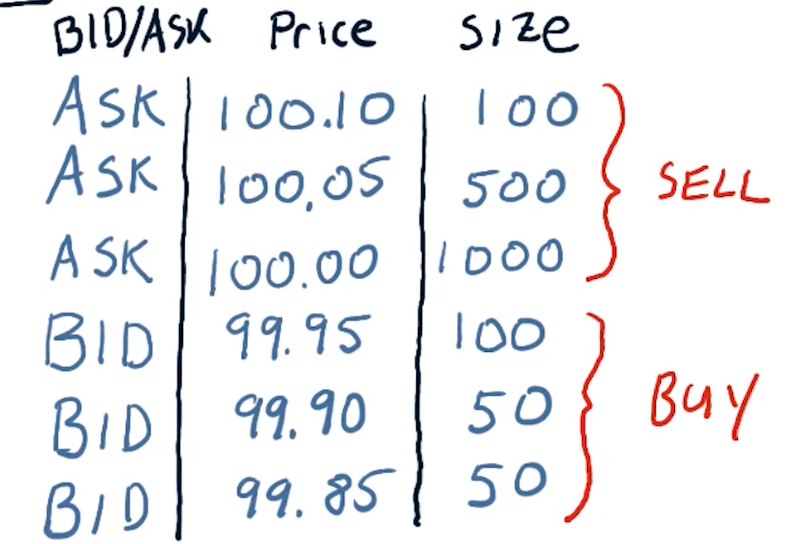 BID/ASK Price SIZE
ASK 100.10 100
ASK 100.05 500 SELL
ASK 100.00 1000
BID 99.95 100
BID 99.90 50 BUY
BID 99.85 50